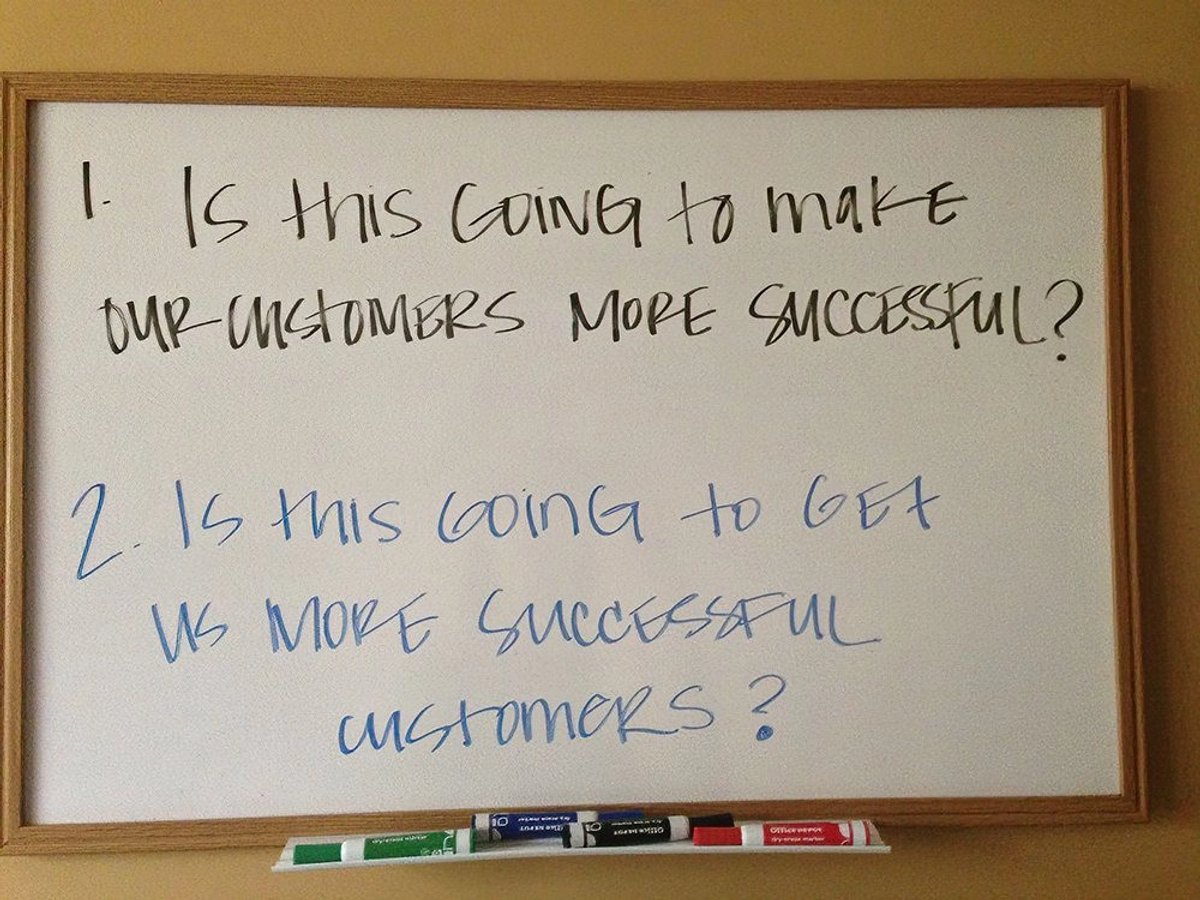 1. Is this GOING to make
OUR CUSTOMERS MORE SUCCESSFUL?
2. Is this GOING to GEt
us MORE SUCCESSFUL
CUSTOMERS?
Office DEPOT
dry-erase marker
OFFICE DEPOT
dry-erase marker